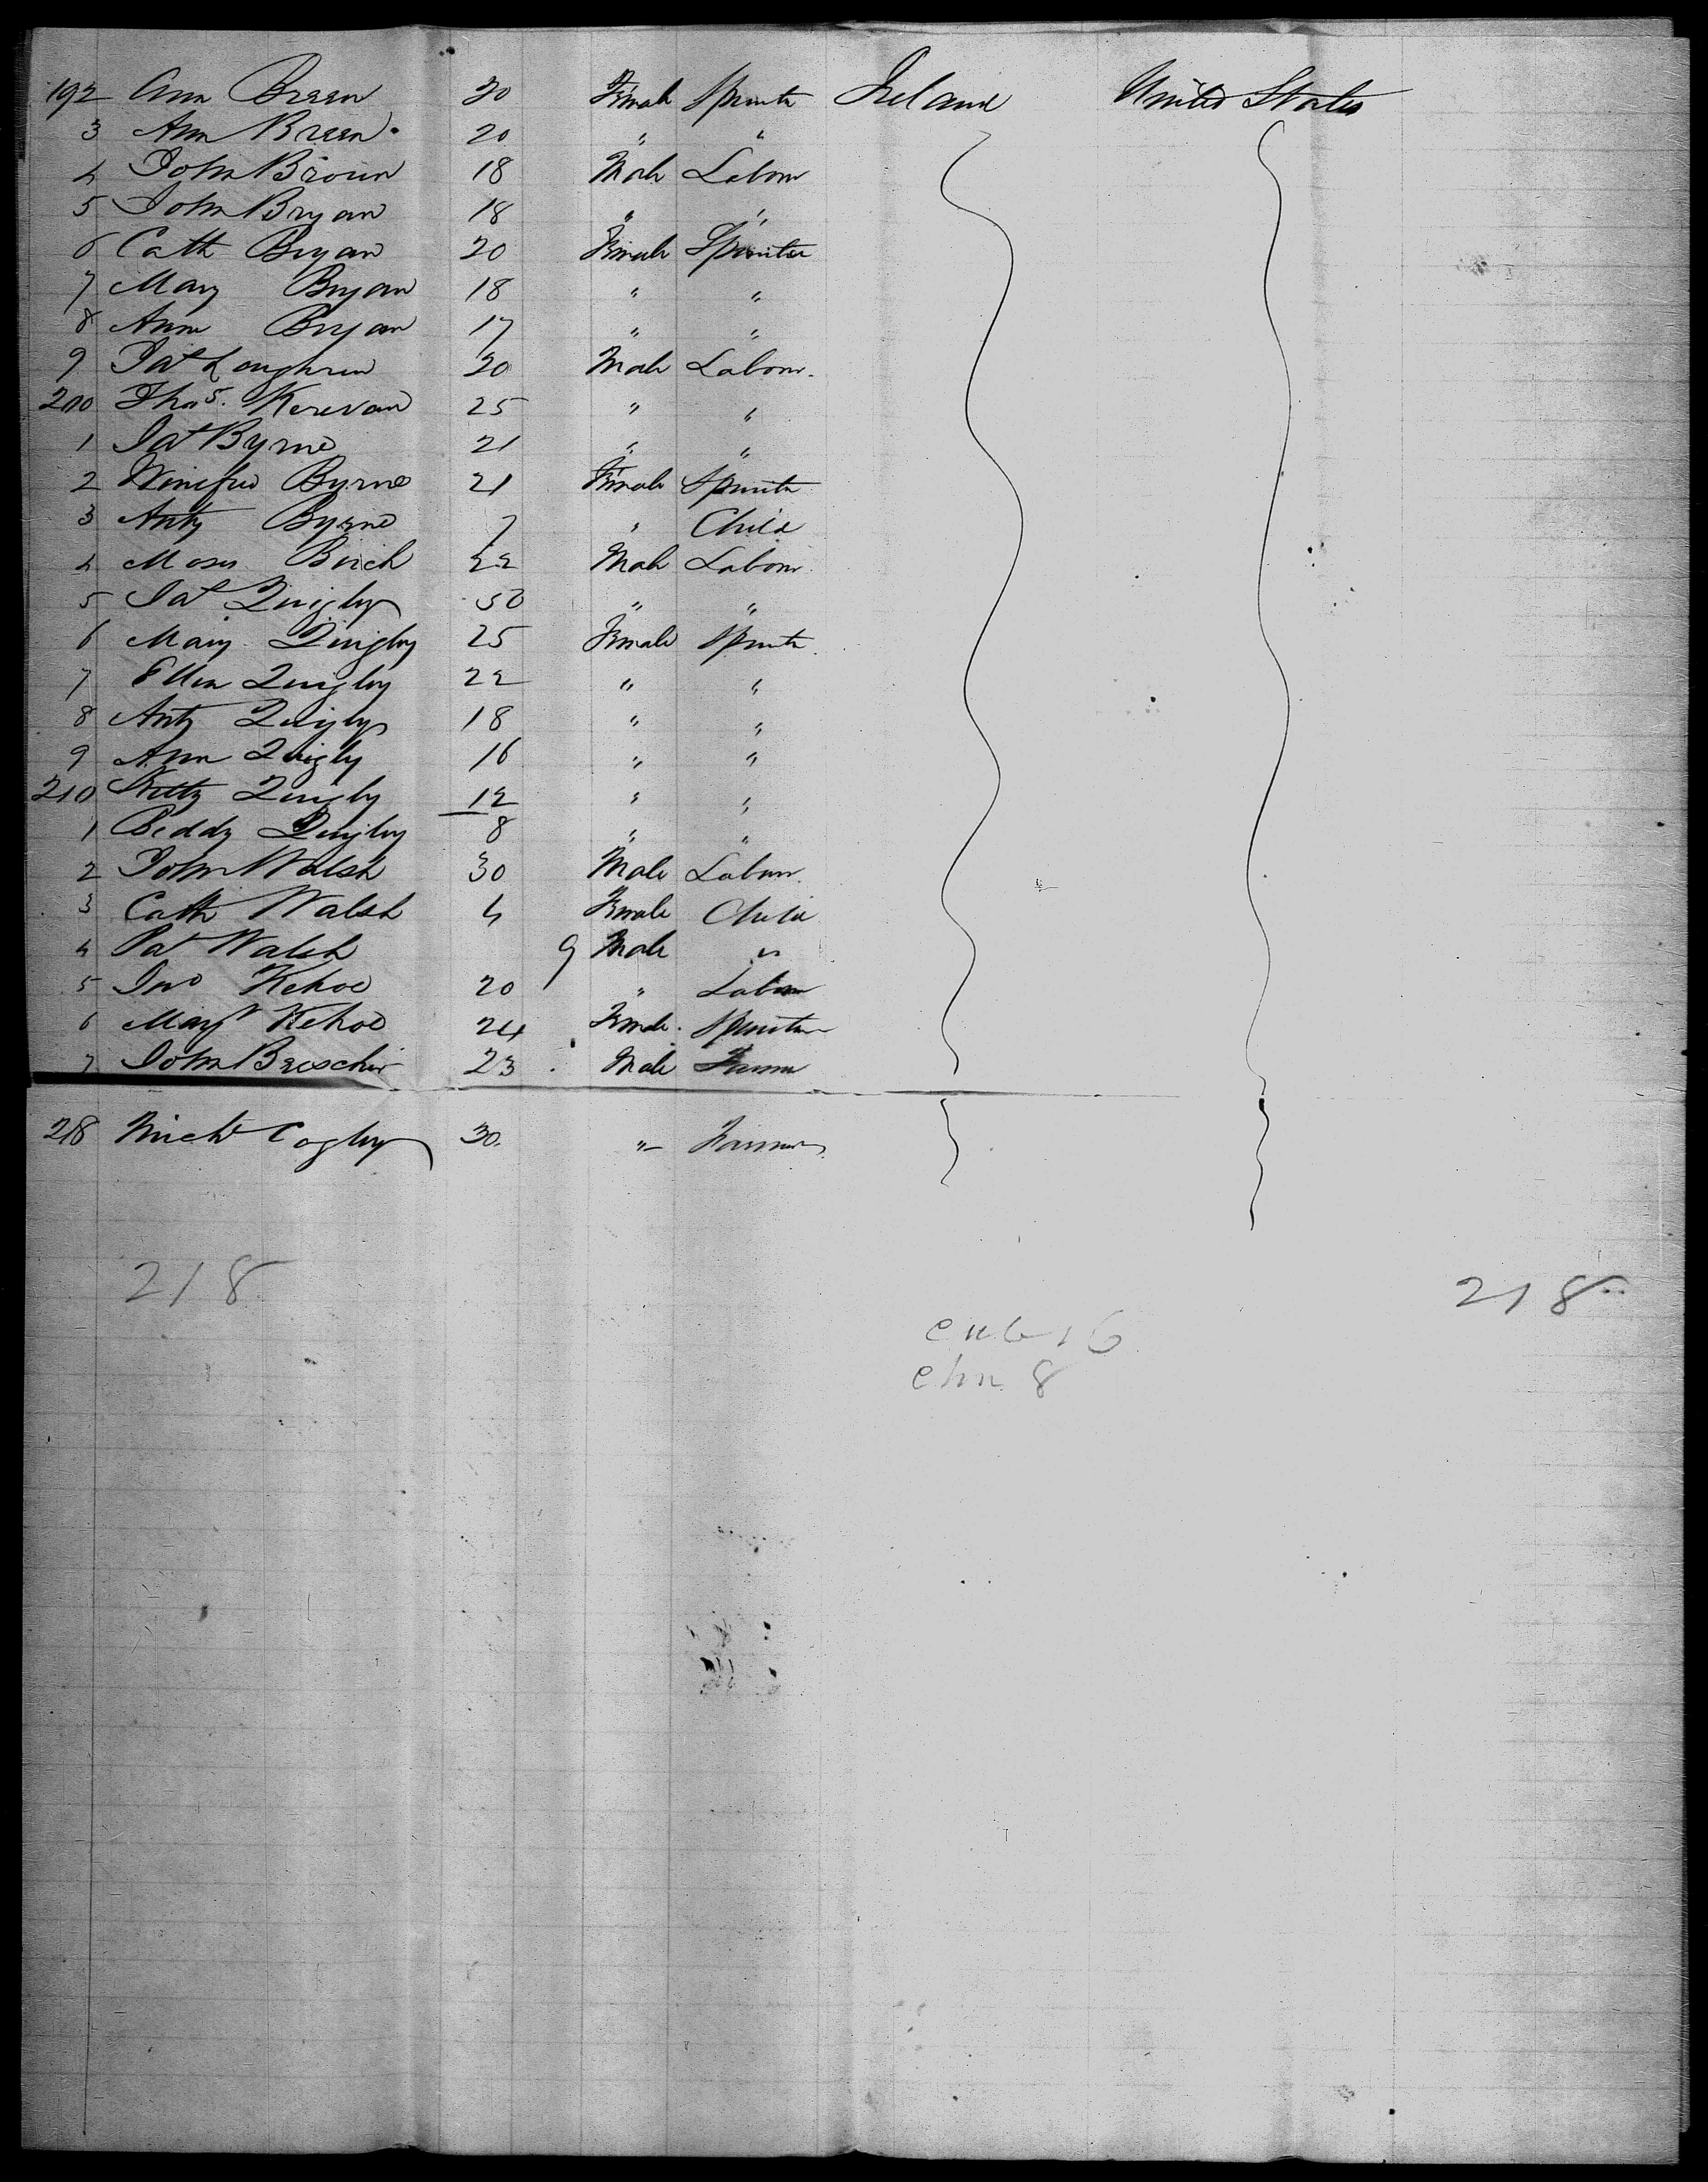 192 Ann Breen 30 Female Spinstr Ireland United States
3 Ann Breen 20 " "
4 John Brown 18 Male Labour
5 John Bryan 18 " "
6 Cath Bryan 20 Female Spinster
7 Mary Bryan 18 " "
8 Ann Bryan 17 " "
9 Pat Loughren 20 Male Labour.
200 Thos. Kerevan 25 " "
1 Pat Byrne 21 " "
2 Winifred Byrne 21 Female Spinstr
3 Anty Byrne 7 " Child
4 Moses Birch 22 Male Labour
5 Pat Quigley 50 " "
6 Mary Quigley 25 Female Spinstr.
7 Ellen Quigley 22 " "
8 Anty Quigley 18 " "
9 Ann Quigly 16 " "
210 Kitty Quigly 12 " "
1 Biddy Quigley 8 " "
2 John Walsh 30 Male Labour.
3 Cath Walsh 4 Female Child
4 Pat Walsh 9 Male "
5 Jno Kehoe 20 " Labour
6 Mary Kehoe 24 Female. Spinster
7 John 23 Male Farmer
218 Michl Cogley 30. " Farmer
218
218
16
chn 8